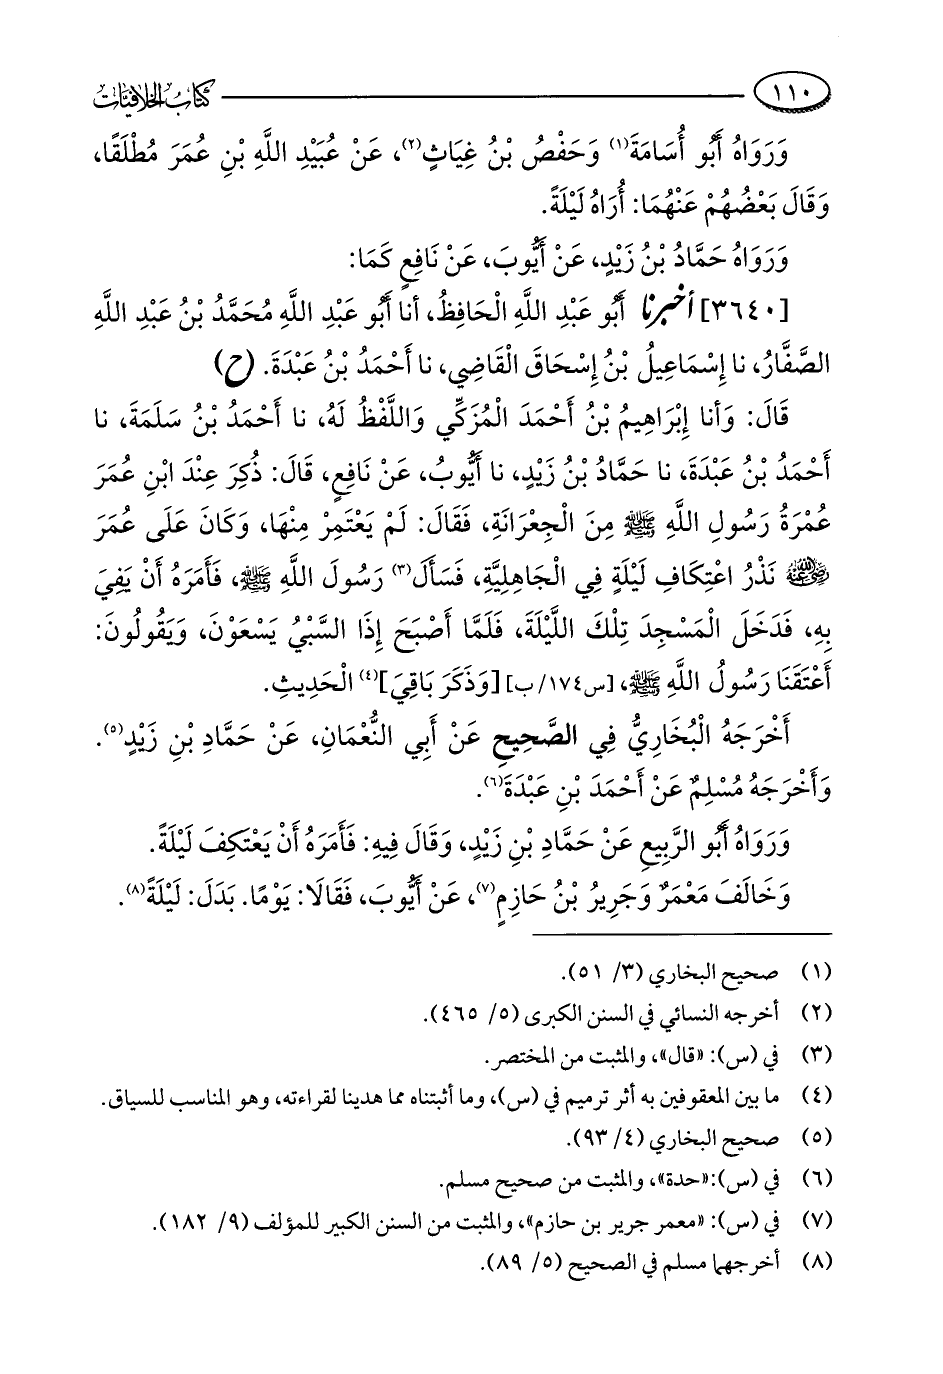 ١١٠ كتاب الخلافيات
وَرَوَاهُ أَبُو أُسَامَةَ(١) وَحَفْصُ بْنُ غِيَاثٍ(٢)، عَنْ عُبَيْدِ اللَّهِ بْنِ عُمَرَ مُطْلَقًا،
وَقَالَ بَعْضُهُمْ عَنْهُمَا: أُرَاهُ لَيْلَةً.
وَرَوَاهُ حَمَّادُ بْنُ زَيْدٍ، عَنْ أَيُّوبَ، عَنْ نَافِعٍ كَمَا:
[٣٦٤٠] أخبرنا أَبُو عَبْدِ اللَّهِ الْحَافِظُ، أنا أَبُو عَبْدِ اللَّهِ مُحَمَّدُ بْنُ عَبْدِ اللَّهِ
الصَّفَّارُ، نا إِسْمَاعِيلُ بْنُ إِسْحَاقَ الْقَاضِي، نا أَحْمَدُ بْنُ عَبْدَةَ. (ح)
قَالَ: وَأنا إِبْرَاهِيمُ بْنُ أَحْمَدَ الْمُزَكِّي وَاللَّفْظُ لَهُ، نا أَحْمَدُ بْنُ سَلَمَةَ، نا
أَحْمَدُ بْنُ عَبْدَةَ، نا حَمَّادُ بْنُ زَيْدٍ، نا أَيُّوبُ، عَنْ نَافِعٍ، قَالَ: ذُكِرَ عِنْدَ ابْنِ عُمَرَ
عُمْرَةُ رَسُولِ اللَّهِ ﷺ مِنَ الْجِعْرَانَةِ، فَقَالَ: لَمْ يَعْتَمِرْ مِنْهَا، وَكَانَ عَلَى عُمَرَ
رضي الله عنه نَذْرُ اعْتِكَافِ لَيْلَةٍ فِي الْجَاهِلِيَّةِ، فَسَأَلَ(٣) رَسُولَ اللَّهِ ﷺ، فَأَمَرَهُ أَنْ يَفِيَ
بِهِ، فَدَخَلَ الْمَسْجِدَ تِلْكَ اللَّيْلَةَ، فَلَمَّا أَصْبَحَ إِذَا السَّبْيُ يَسْعَوْنَ، وَيَقُولُونَ:
أَعْتَقَنَا رَسُولُ اللَّهِ ﷺ، [س١٧٤/ب] [وَذَكَرَ بَاقِيَ](٤) الْحَدِيثِ.
أَخْرَجَهُ الْبُخَارِيُّ فِي الصَّحِيحِ عَنْ أَبِي النُّعْمَانِ، عَنْ حَمَّادِ بْنِ زَيْدٍ(٥).
وَأَخْرَجَهُ مُسْلِمٌ عَنْ أَحْمَدَ بْنِ عَبْدَةَ(٦).
وَرَوَاهُ أَبُو الرَّبِيعِ عَنْ حَمَّادِ بْنِ زَيْدٍ، وَقَالَ فِيهِ: فَأَمَرَهُ أَنْ يَعْتَكِفَ لَيْلَةً.
وَخَالَفَ مَعْمَرٌ وَجَرِيرُ بْنُ حَازِمٍ(٧)، عَنْ أَيُّوبَ، فَقَالَا: يَوْمًا. بَدَلَ: لَيْلَةً(٨).
(١) صحيح البخاري (٣/ ٥١).
(٢) أخرجه النسائي في السنن الكبرى (٥/ ٤٦٥).
(٣) في (س): «قال»، والمثبت من المختصر.
(٤) ما بين المعقوفين به أثر ترميم في (س)، وما أثبتناه مما هدينا لقراءته، وهو المناسب للسياق.
(٥) صحيح البخاري (٤/ ٩٣).
(٦) في (س):«حدة»، والمثبت من صحيح مسلم.
(٧) في (س): «معمر جرير بن حازم»، والمثبت من السنن الكبير للمؤلف (٩/ ١٨٢).
(٨) أخرجهما مسلم في الصحيح (٥/ ٨٩).